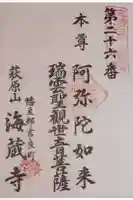 第二十六番
本尊
阿弥陀如来
瑞雲聖観世音菩薩
幡豆郡吉良町
萩原山
海蔵寺